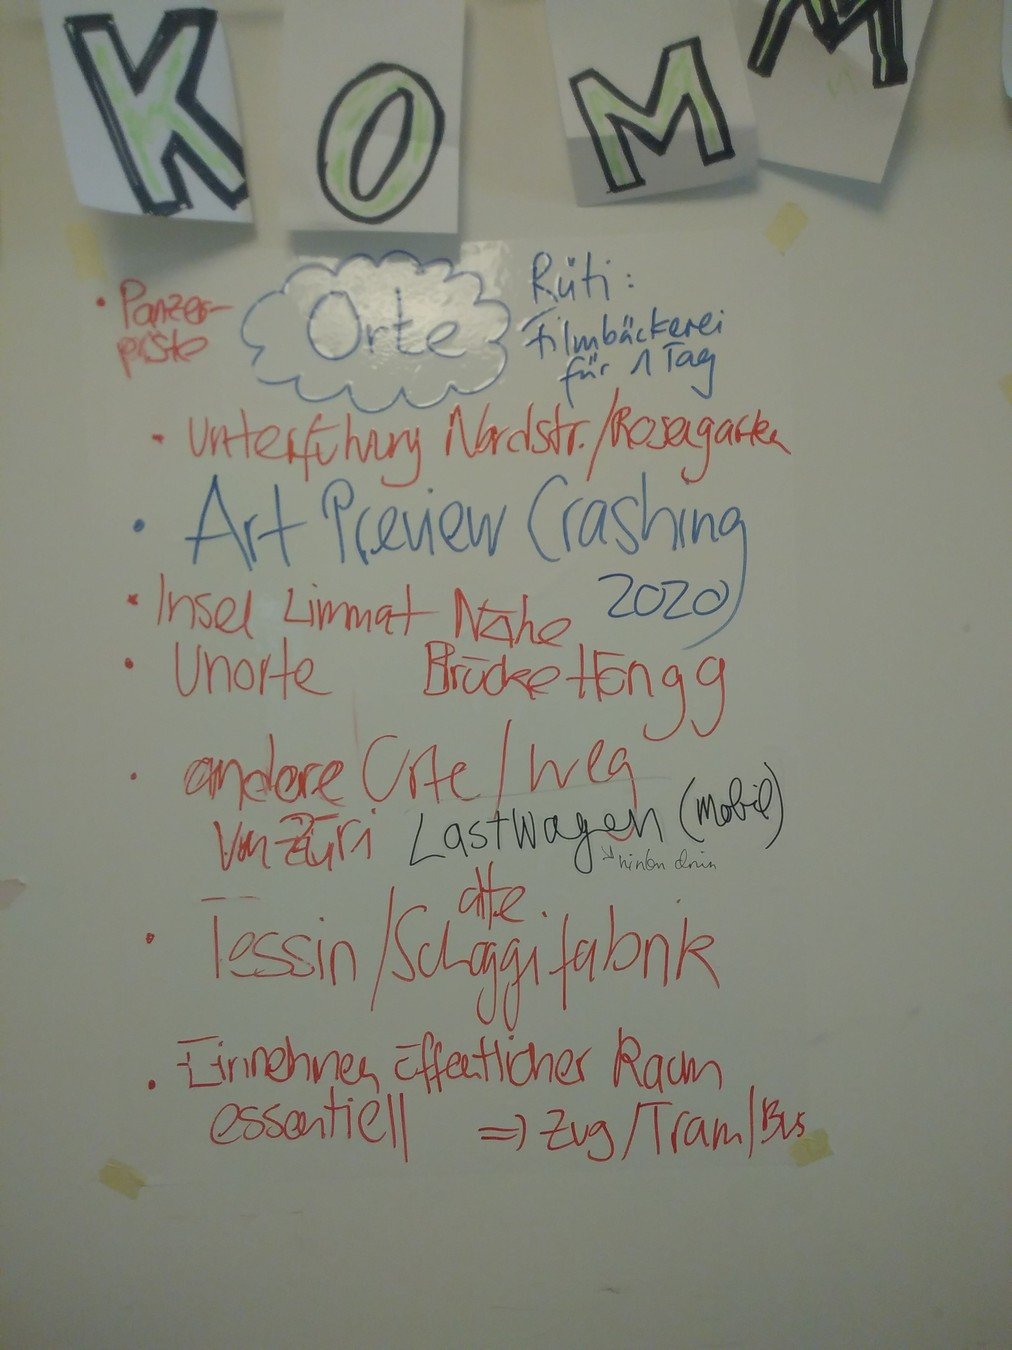 KOMM
• Panzer-
piste
Orte
Rüti:
Filmbäckerei
für 1 Tag
• Unterführung Nordstr./Rosengarten
• Art Preview Crashing
2020
• Insel Limmat Nähe
Brücke Höngg
• Unorte
• andere Orte/weg
von Züri
Lastwagen (mobil)
↘ hinten drin
• Tessin/alte Schoggifabrik
• Einnehmen öffentlicher Raum
essentiell => Zug/Tram/Bus